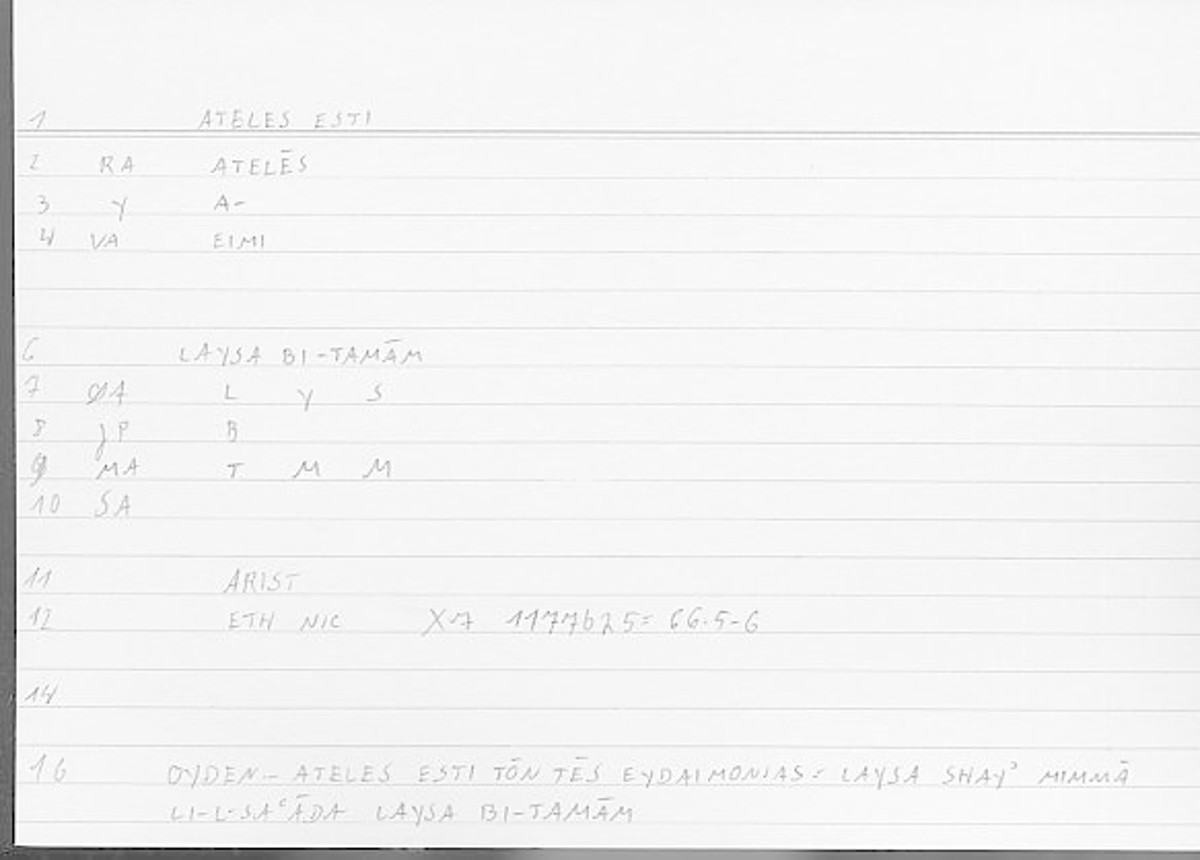 1 ATELES ESTI
2 RA ATELĒS
3 Y A-
4 VA EIMI
6 LAYSA BI-TAMĀM
7 ØA L Y S
8 JP B
9 MA T M M
10 SA
11 ARIST
12 ETH NIC X7 1177b25= 66.5-6
14
16 OYDEN- ATELES ESTI TŌN TĒS EYDAIMONIAS= LAYSA SHAYʾ MIMMĀ
LI-L-SAʿĀDA LAYSA BI-TAMĀM